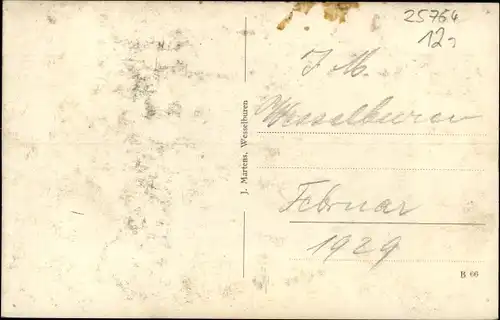 25764
12,
J. M.
Wesselburen
J. Martens, Wesselburen
Februar
1929
B 66